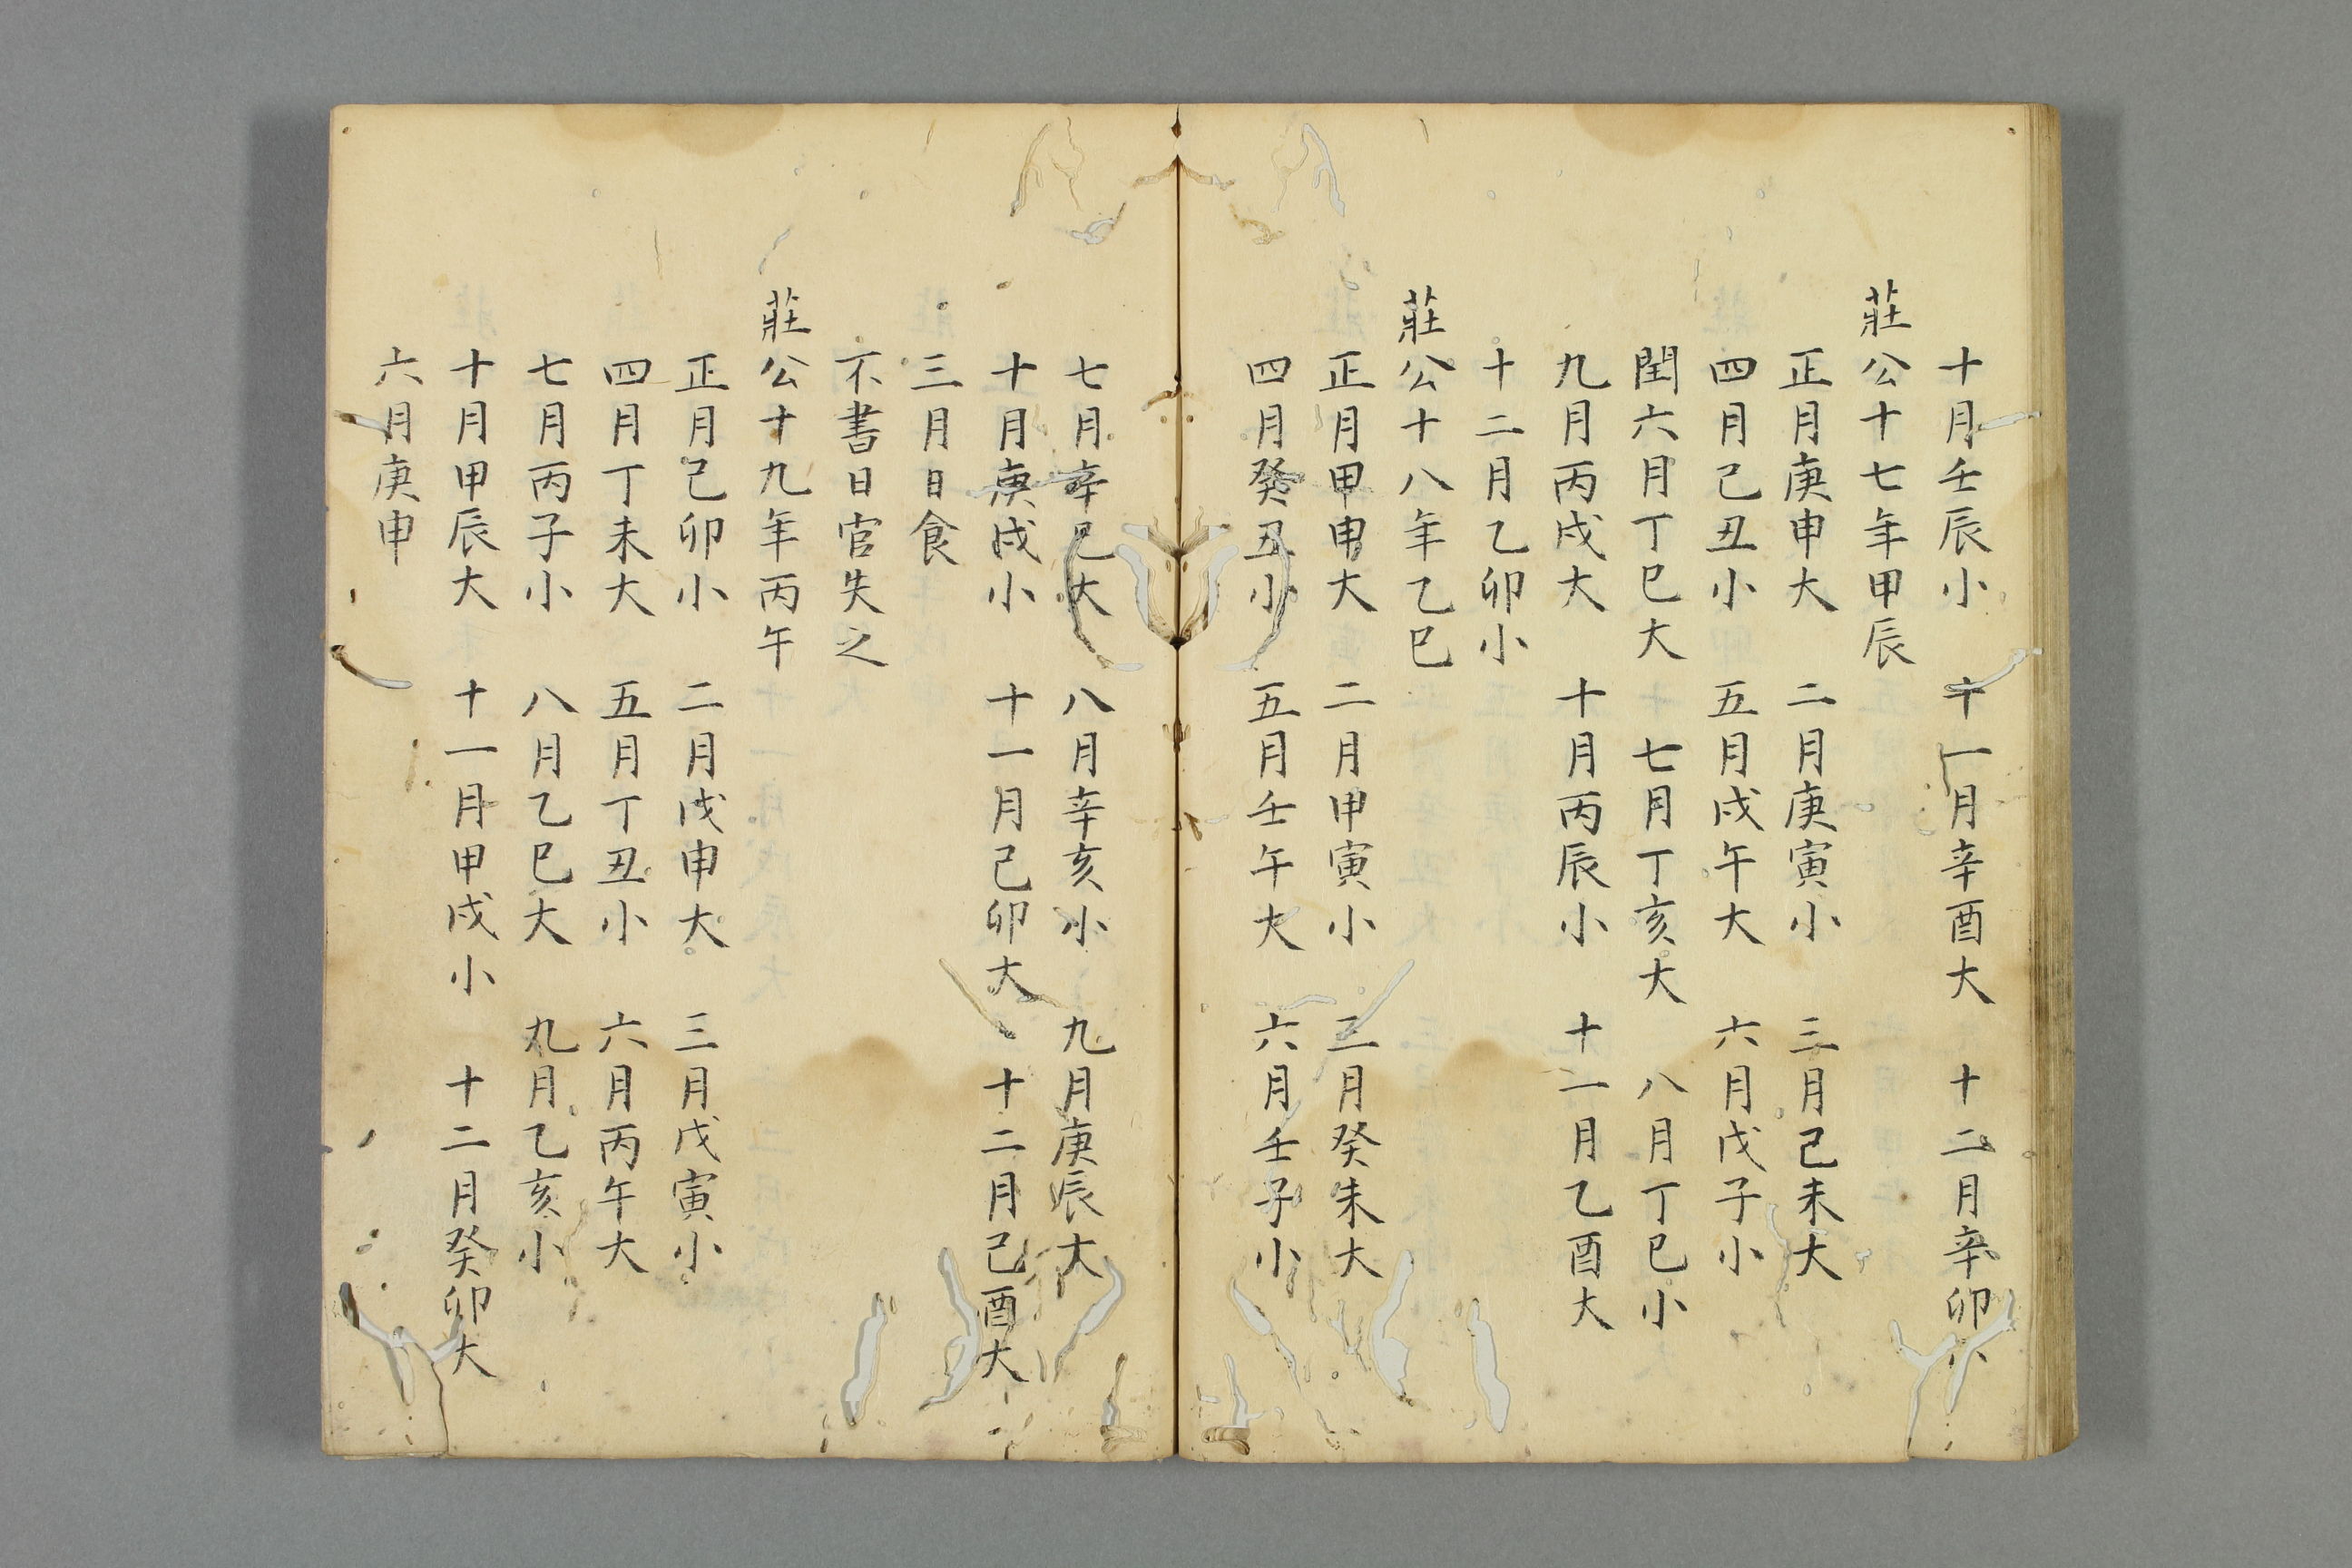 十月壬辰小 十一月辛酉大 十二月辛卯小
莊公十七年甲辰
正月庚申大 二月庚寅小 三月己未大
四月己丑小 五月戊午大 六月戊子小
閏六月丁巳大 七月丁亥大 八月丁巳小
九月丙戌大 十月丙辰小 十一月乙酉大
十二月乙卯小
莊公十八年乙巳
正月甲申大 二月甲寅小 三月癸未大
四月癸丑小 五月壬午大 六月壬子小
七月辛巳大 八月辛亥小 九月庚辰大
十月庚戌小 十一月己卯大 十二月己酉大
三月日食
不書日官失之
莊公十九年丙午
正月己卯小 二月戊申大 三月戊寅小
四月丁未大 五月丁丑小 六月丙午大
七月丙子小 八月乙巳大 九月乙亥小
十月甲辰大 十一月甲戌小 十二月癸卯大
六月庚申